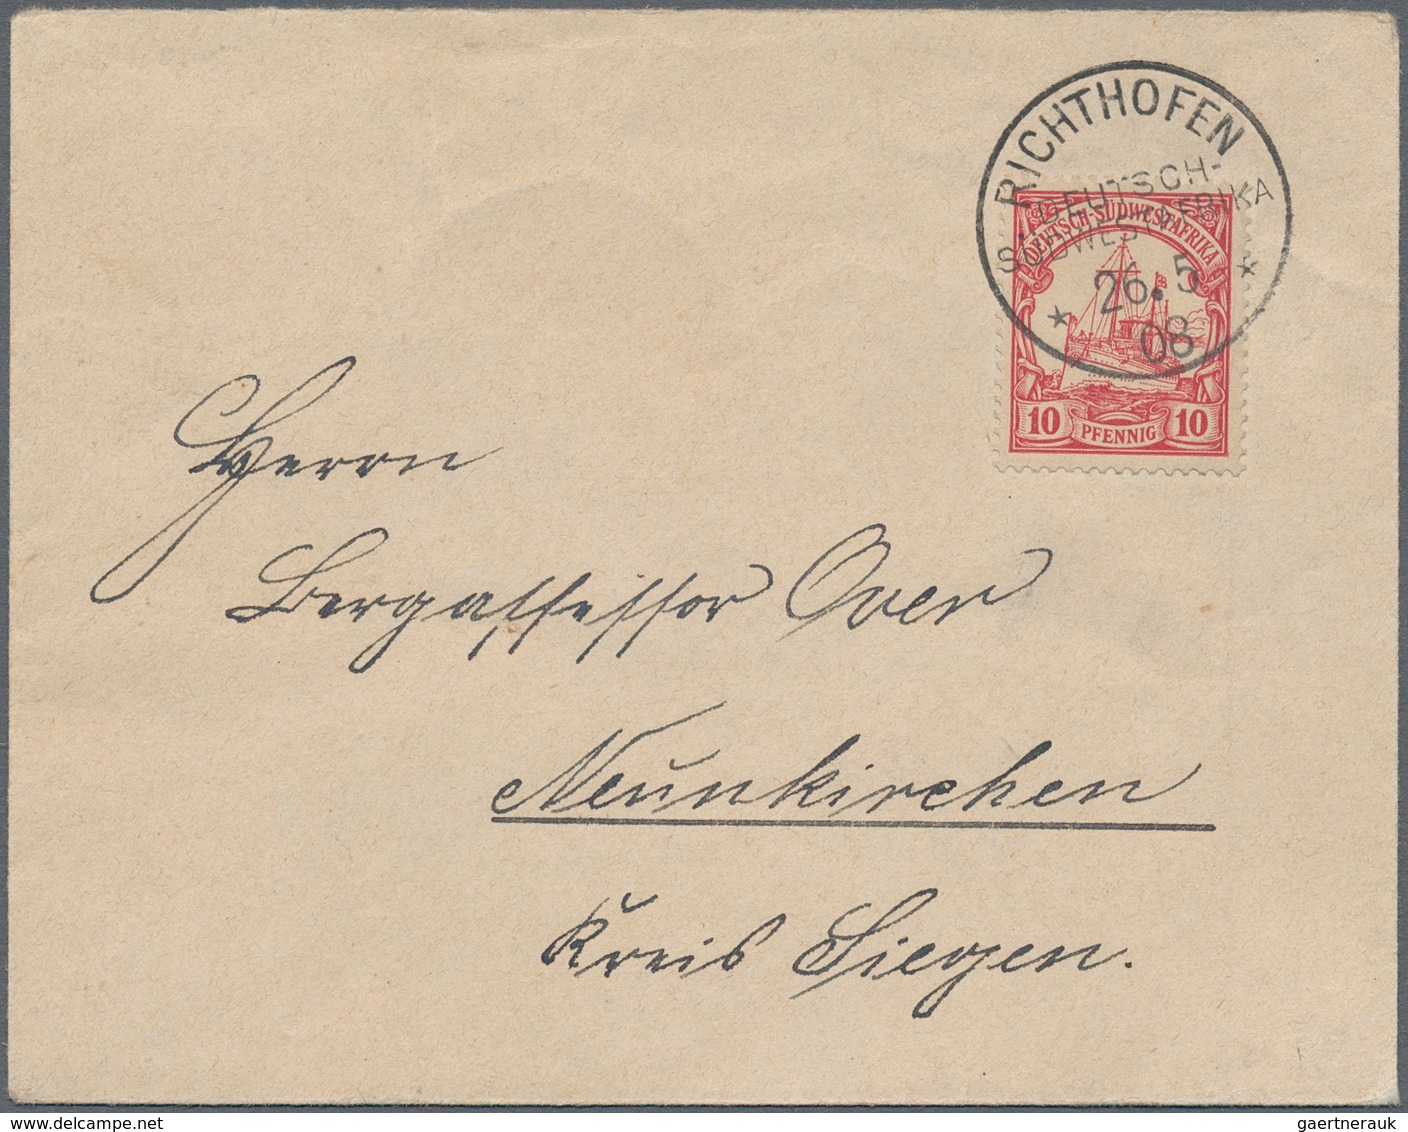 RICHTHOFEN
DEUTSCH-
SÜDWESTAFRIKA
* 26.5 *
08
DEUTSCH-SÜDWESTAFRIKA
10 PFENNIG 10
Herrn
Bergassessor Over
Neunkirchen
Kreis Siegen.
gaertnerauk